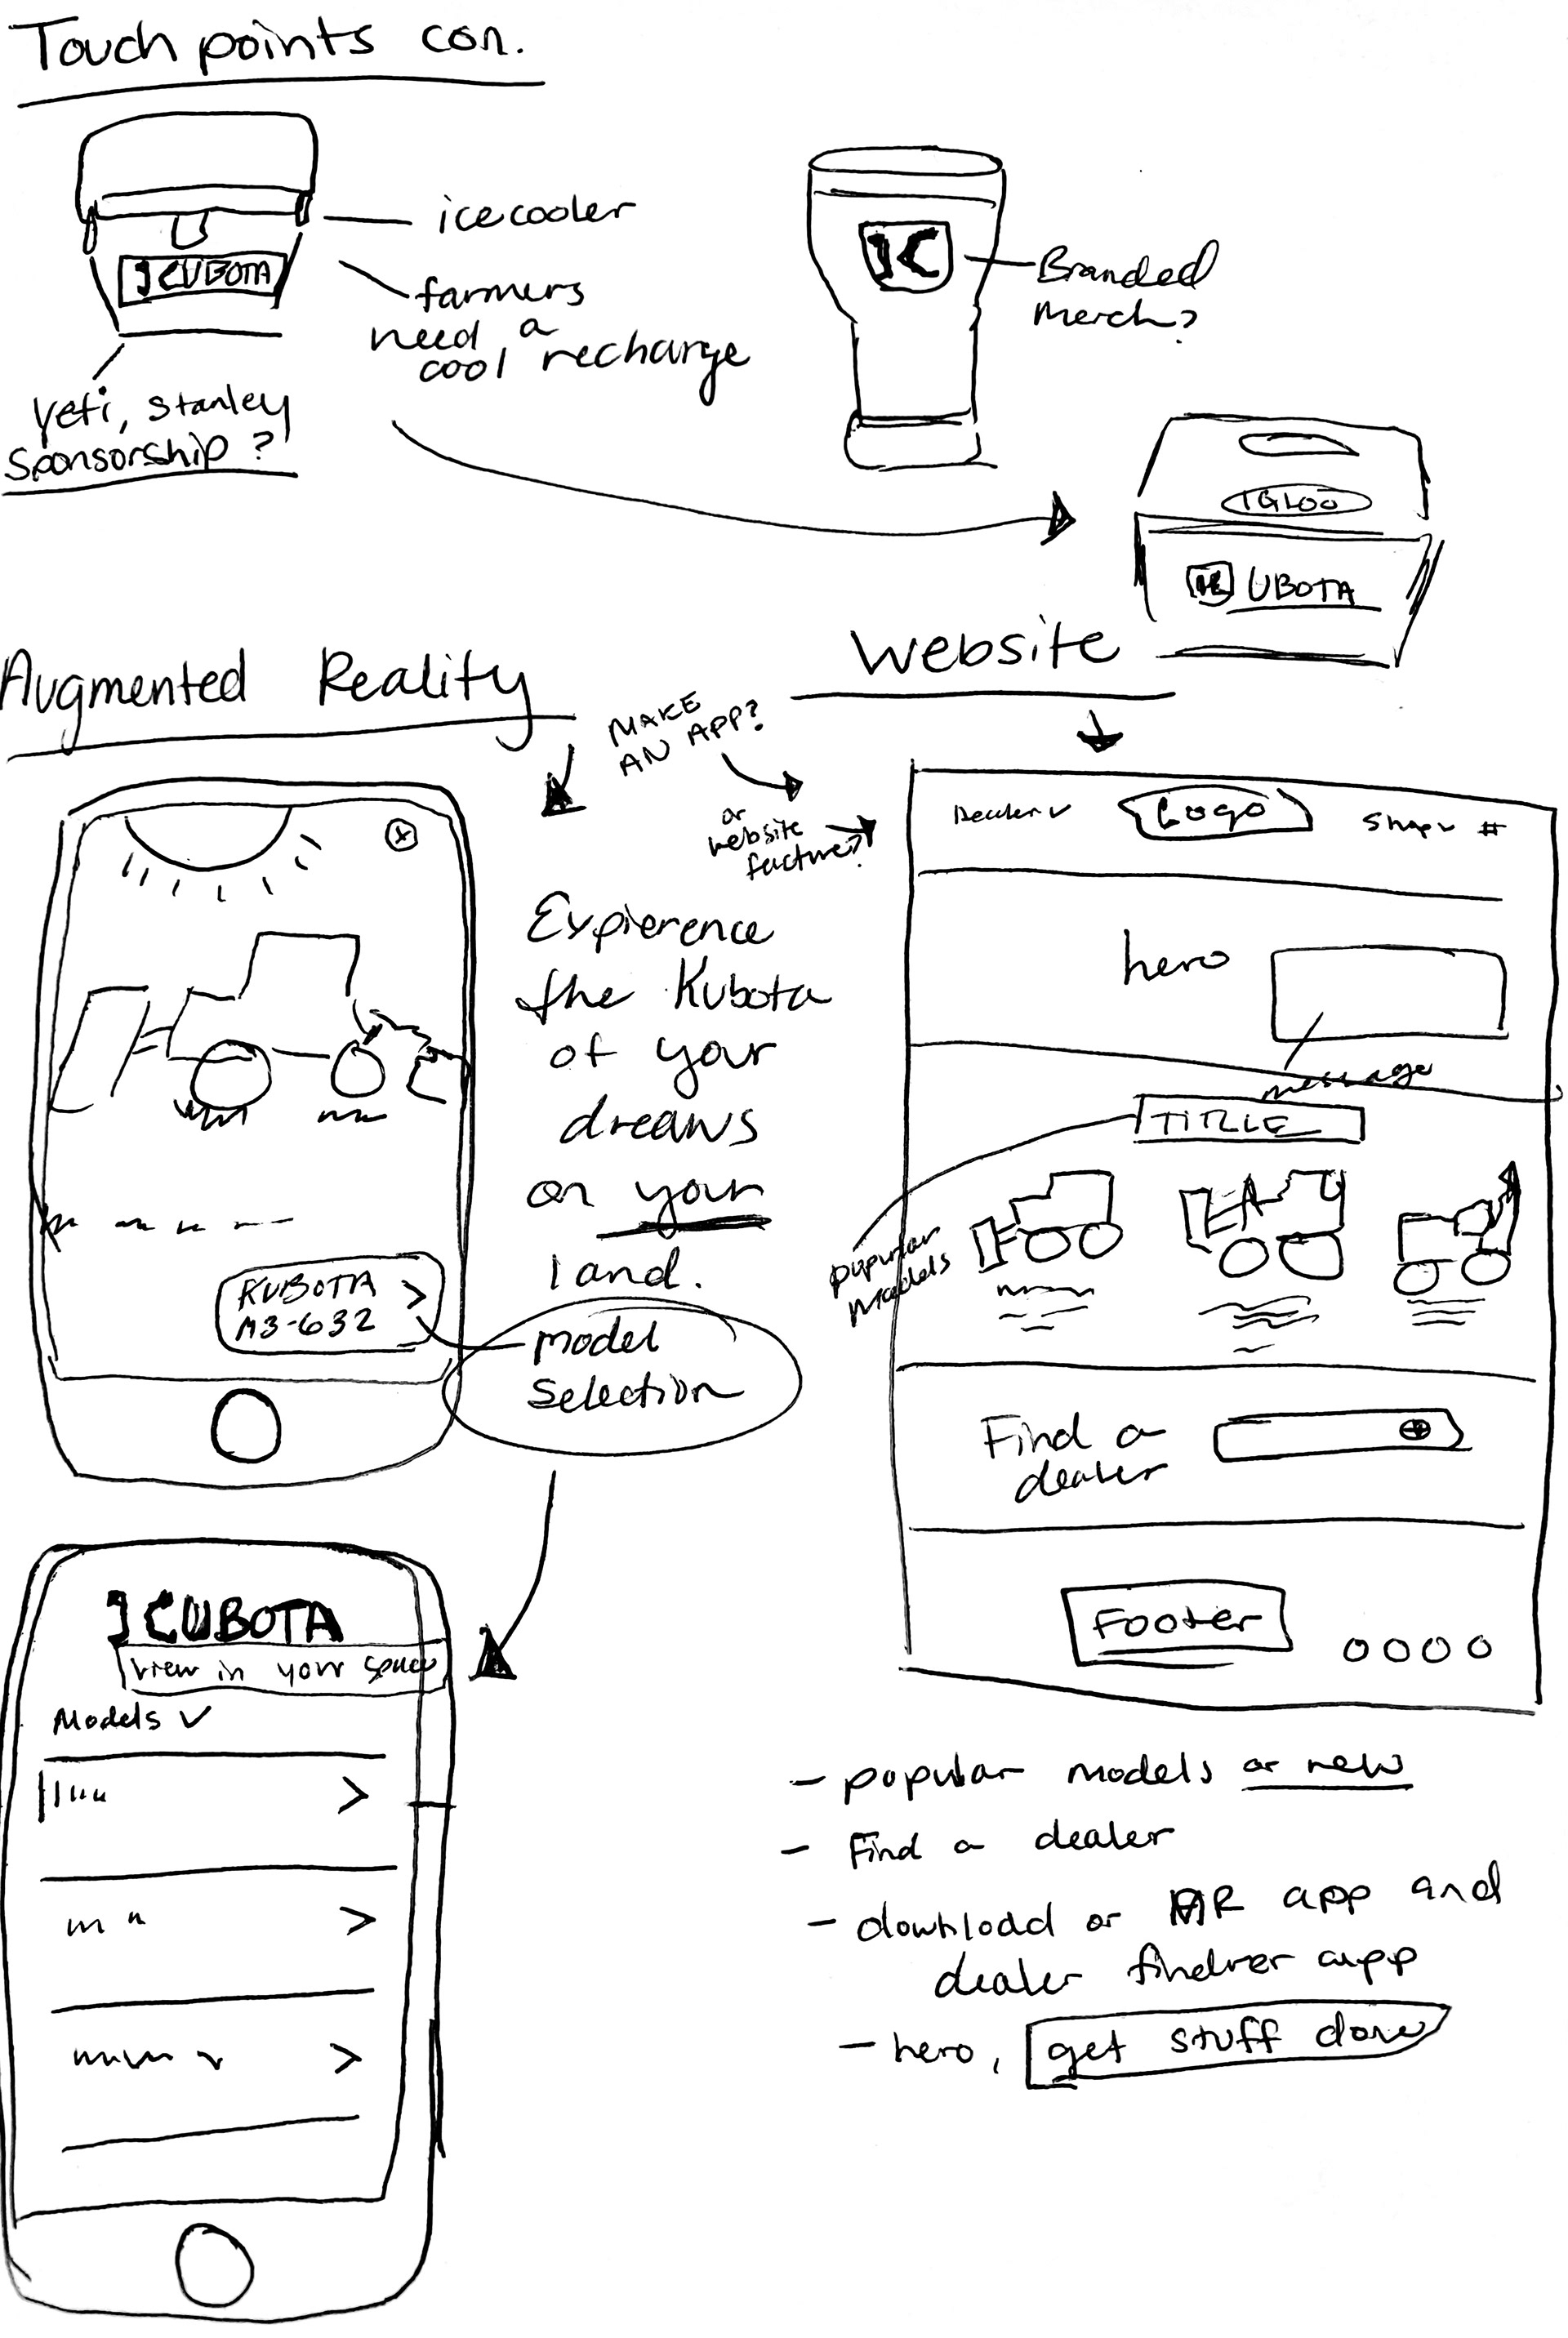 Touch points con.
icecooler
JCUBOTA
farmers
need a
cool recharge
Yeti, Stanley
Sponsorship?
K
Branded
Merch?
IGLOO
K UBOTA
Augmented Reality
MAKE
AN APP?
or
website
Expierence
the Kubota
of your
dreams
on your
land.
KUBOTA >
M3-632
Model
Selection
KUBOTA
view in your space
Models
>
>
>
Website
Dealer Logo Shop #
hero
message
TITLE
popular
models
Find a
dealer
Footer
- popular models or new
- Find a dealer
- download or AR app and
dealer app
- hero, get stuff done